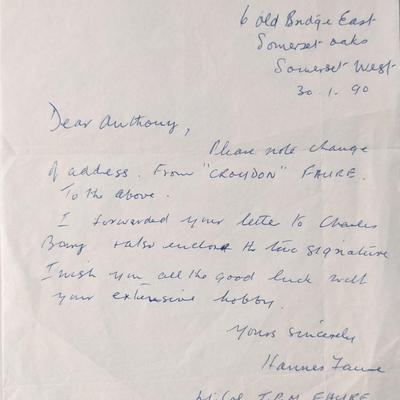 6 Old Bridge East
Somerset Oaks
Somerset West
30.1.90
Dear Anthony,
Please note change
of address. From "CROYDON" FAURE.
To the above.
I forwarded your lette to Charles
& also the two signature
I wish you all the good luck with
your extensive hobby.
Yours sincerely
Hannes Faure
FAURE